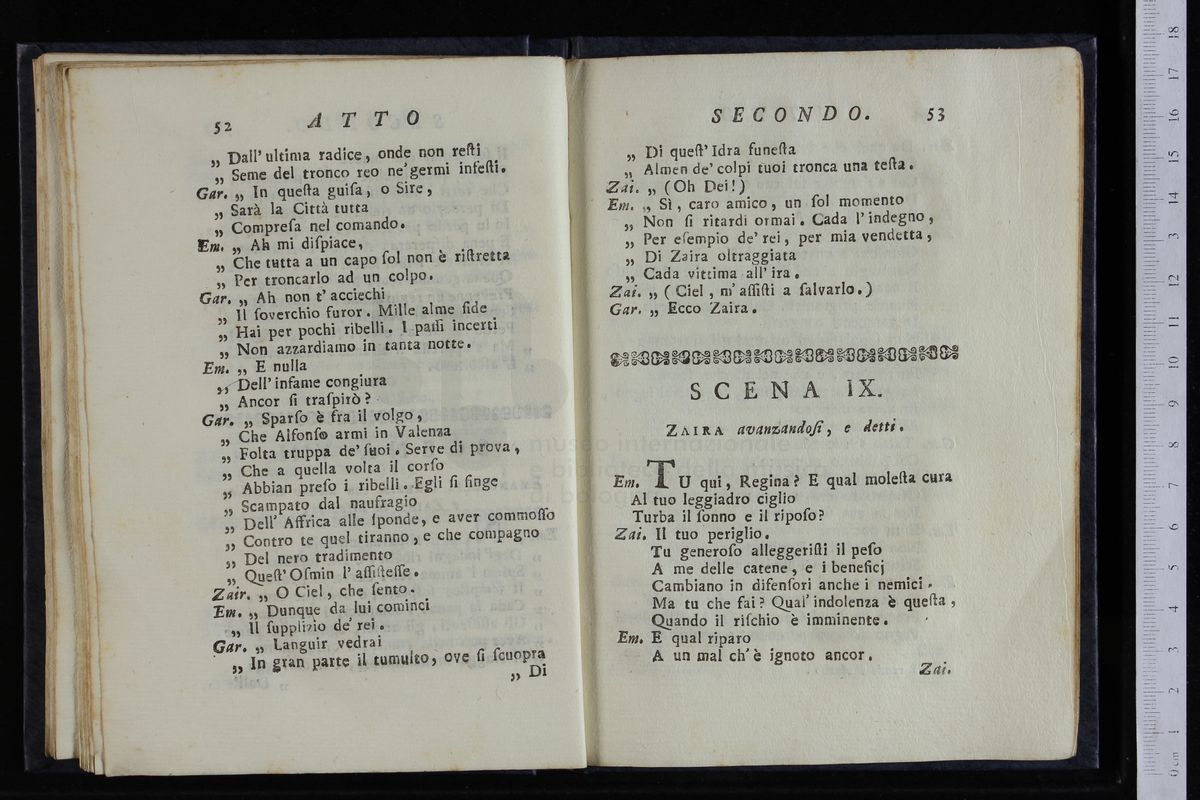 52 ATTO
„ Dall' ultima radice, onde non reſti
„ Seme del tronco reo ne' germi infeſti.
Gar. „ In queſta guiſa, o Sire,
„ Sarà la Città tutta
„ Compreſa nel comando.
Em. „ Ah mi diſpiace,
„ Che tutta a un capo ſol non è riſtretta
„ Per troncarlo ad un colpo.
Gar. „ Ah non t' acciechi
„ Il ſoverchio furor. Mille alme fide
„ Hai per pochi ribelli. I paſſi incerti
„ Non azzardiamo in tanta notte.
Em. „ E nulla
„ Dell' infame congiura
„ Ancor ſi traſpirò?
Gar. „ Sparſo è fra il volgo,
„ Che Alfonſo armi in Valenza
„ Folta truppa de' ſuoi. Serve di prova,
„ Che a quella volta il corſo
„ Abbian preſo i ribelli. Egli ſi finge
„ Scampato dal naufragio
„ Dell' Affrica alle ſponde, e aver commoſſo
„ Contro te quel tiranno, e che compagno
„ Del nero tradimento
„ Queſt' Oſmin l' aſſiſteſſe.
Zair. „ O Ciel, che ſento.
Em. „ Dunque da lui cominci
„ Il ſupplizio de' rei.
Gar. „ Languir vedrai
„ In gran parte il tumulto, ove ſi ſcuopra
„ Di
SECONDO. 53
„ Di queſt' Idra funeſta
„ Almen de' colpi tuoi tronca una teſta.
Zai. „ (Oh Dei!)
Em. „ Sì, caro amico, un ſol momento
„ Non ſi ritardi ormai. Cada l' indegno,
„ Per eſempio de' rei, per mia vendetta,
„ Di Zaira oltraggiata
„ Cada vittima all' ira.
Zai. „ (Ciel, m' aſſiſti a ſalvarlo.)
Gar. „ Ecco Zaira.
SCENA IX.
ZAIRA avanzandoſi, e detti.
Em. TU qui, Regina? E qual moleſta cura
Al tuo leggiadro ciglio
Turba il ſonno e il ripoſo?
Zai. Il tuo periglio.
Tu generoſo alleggeriſti il peſo
A me delle catene, e i beneficj
Cambiano in difenſori anche i nemici.
Ma tu che fai? Qual' indolenza è queſta,
Quando il riſchio è imminente.
Em. E qual riparo
A un mal ch' è ignoto ancor.
Zai.